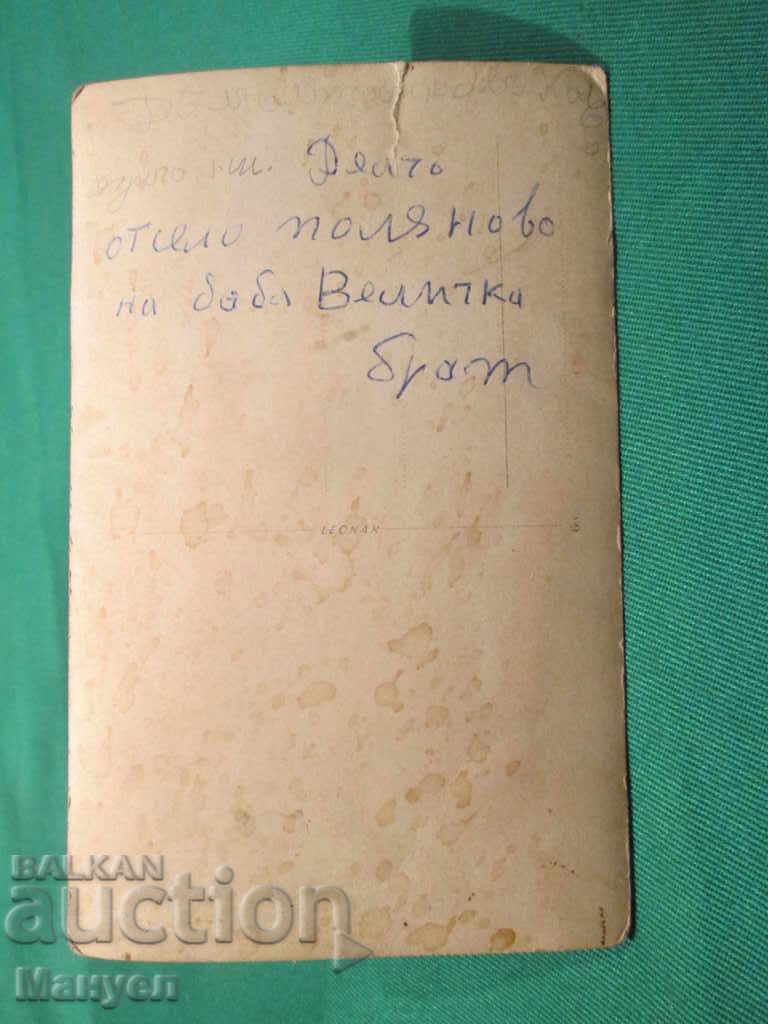 Делчь
от село поляново
на баба Величка
брат
LEONAR
BALKAN
auction
Мануел